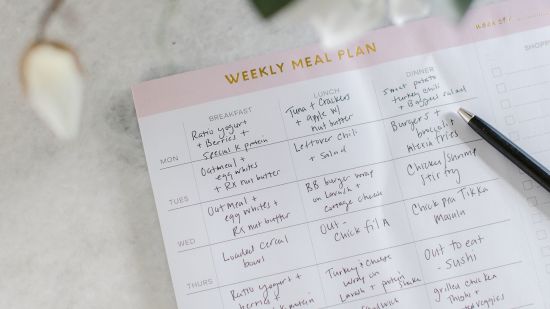 WEEKLY MEAL PLAN
WEEK OF
SHOPP
BREAKFAST
LUNCH
DINNER
MON
Ratio yogurt
+ Berries +
Special K protein
Tuna + Crackers
+ apple w/
nut butter
Sweet potato
turkey chili
+ Bagged salad
TUES
Oatmeal +
egg whites
+ RX nut butter
Leftover Chili
+ Salad
Burgers +
broccoli +
Alexia fries
WED
Oatmeal +
egg whites +
RX nut butter
BB burger wrap
on Lavash +
cottage cheese
Chicken/Shrimp
stir fry
THURS
Loaded cereal
bowls
Out -
Chick fil A
Chick pea Tikka
Masala
Ratio yogurt +
berries +
K protein
Turkey + cheese
wrap on
Lavash + protein
shake
Out to eat
- Sushi
sandwich
grilled chicken
Thighs +
veggies